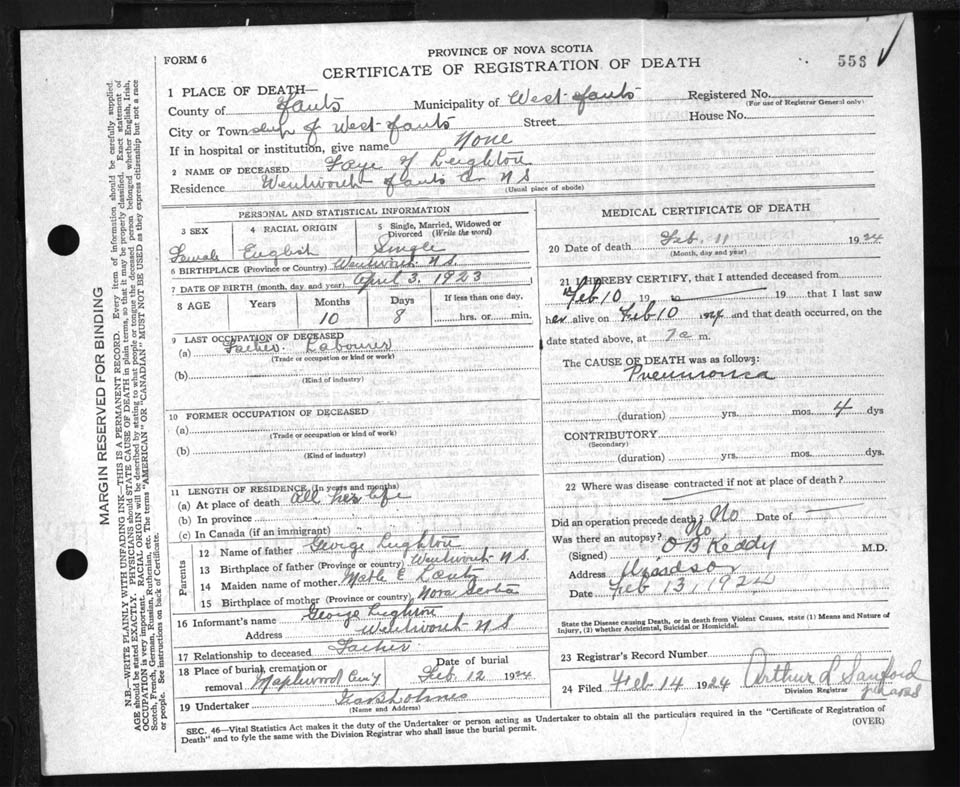 FORM 6
PROVINCE OF NOVA SCOTIA
CERTIFICATE OF REGISTRATION OF DEATH
553
1 PLACE OF DEATH—
County of Hants Municipality of West Hants Registered No.
(For use of Registrar General only)
City or Township of West Hants Street House No.
If in hospital or institution, give name None
2 NAME OF DECEASED Faye Y Leighton
Residence Wentworth Hants Co N S
(Usual place of abode)
PERSONAL AND STATISTICAL INFORMATION
3 SEX 4 RACIAL ORIGIN 5 Single, Married, Widowed or Divorced (Write the word)
Female English Single
6 BIRTHPLACE (Province or Country) Wentworth N S
7 DATE OF BIRTH (month, day and year) April 3, 1923
8 AGE Years Months Days If less than one day,
10 8 hrs. or min.
9 LAST OCCUPATION OF DECEASED
(a) Father Labourer
(Trade or occupation or kind or work)
(b)
(Kind of industry)
10 FORMER OCCUPATION OF DECEASED
(a)
(Trade or occupation or kind of work)
(b)
(Kind of industry)
11 LENGTH OF RESIDENCE (In years and months)
(a) At place of death All her life
(b) In province
(c) In Canada (if an immigrant)
Parents
12 Name of father George Leighton
13 Birthplace of father (Province or country) Wentworth N.S.
14 Maiden name of mother Mable E
15 Birthplace of mother (Province or country) Nova Scotia
16 Informant's name George Leighton
Address Wentworth N S
17 Relationship to deceased Father
18 Place of burial, cremation or removal Maplewood Cem'y Date of burial Feb 12 1924
19 Undertaker
(Name and Address)
MEDICAL CERTIFICATE OF DEATH
20 Date of death Feb. 11 1924
(Month, day and year)
21 I HEREBY CERTIFY, that I attended deceased from
Feb 10 19 to 19 that I last saw
her alive on Feb 10 1924 and that death occurred, on the
date stated above, at 7 a m.
The CAUSE OF DEATH was as follows:
Pneumonia
(duration) yrs. mos. 4 dys
CONTRIBUTORY
(Secondary)
(duration) yrs. mos. dys.
22 Where was disease contracted if not at place of death?
Did an operation precede death? No Date of
Was there an autopsy? No
(Signed) O B Keddy M.D.
Address Windsor
Date Feb 13, 1924
State the Disease causing Death, or in death from Violent Causes, state (1) Means and Nature of
Injury, (2) whether Accidental, Suicidal or Homicidal.
23 Registrar's Record Number
24 Filed Feb 14 1924 Arthur L Sanford
Division Registrar
SEC. 46—Vital Statistics Act makes it the duty of the Undertaker or person acting as Undertaker to obtain all the particulars required in the "Certificate of Registration of
Death" and to fyle the same with the Division Registrar who shall issue the burial permit.
(OVER)
MARGIN RESERVED FOR BINDING
N.B.—WRITE PLAINLY WITH UNFADING INK—THIS IS A PERMANENT RECORD. Every item of information should be carefully supplied.
AGE should be stated EXACTLY. PHYSICIANS should STATE CAUSE OF DEATH in plain terms, so that it may be properly classified. Exact statement of
OCCUPATION is very important. RACIAL ORIGIN will be described by stating to what people or tongue the deceased person belonged whether English, Irish,
Scotch, French, German, Russian, Ruthenian, etc. The terms "AMERICAN" OR "CANADIAN" MUST NOT BE USED as they express citizenship but not a race
or people. See instructions on back of Certificate.